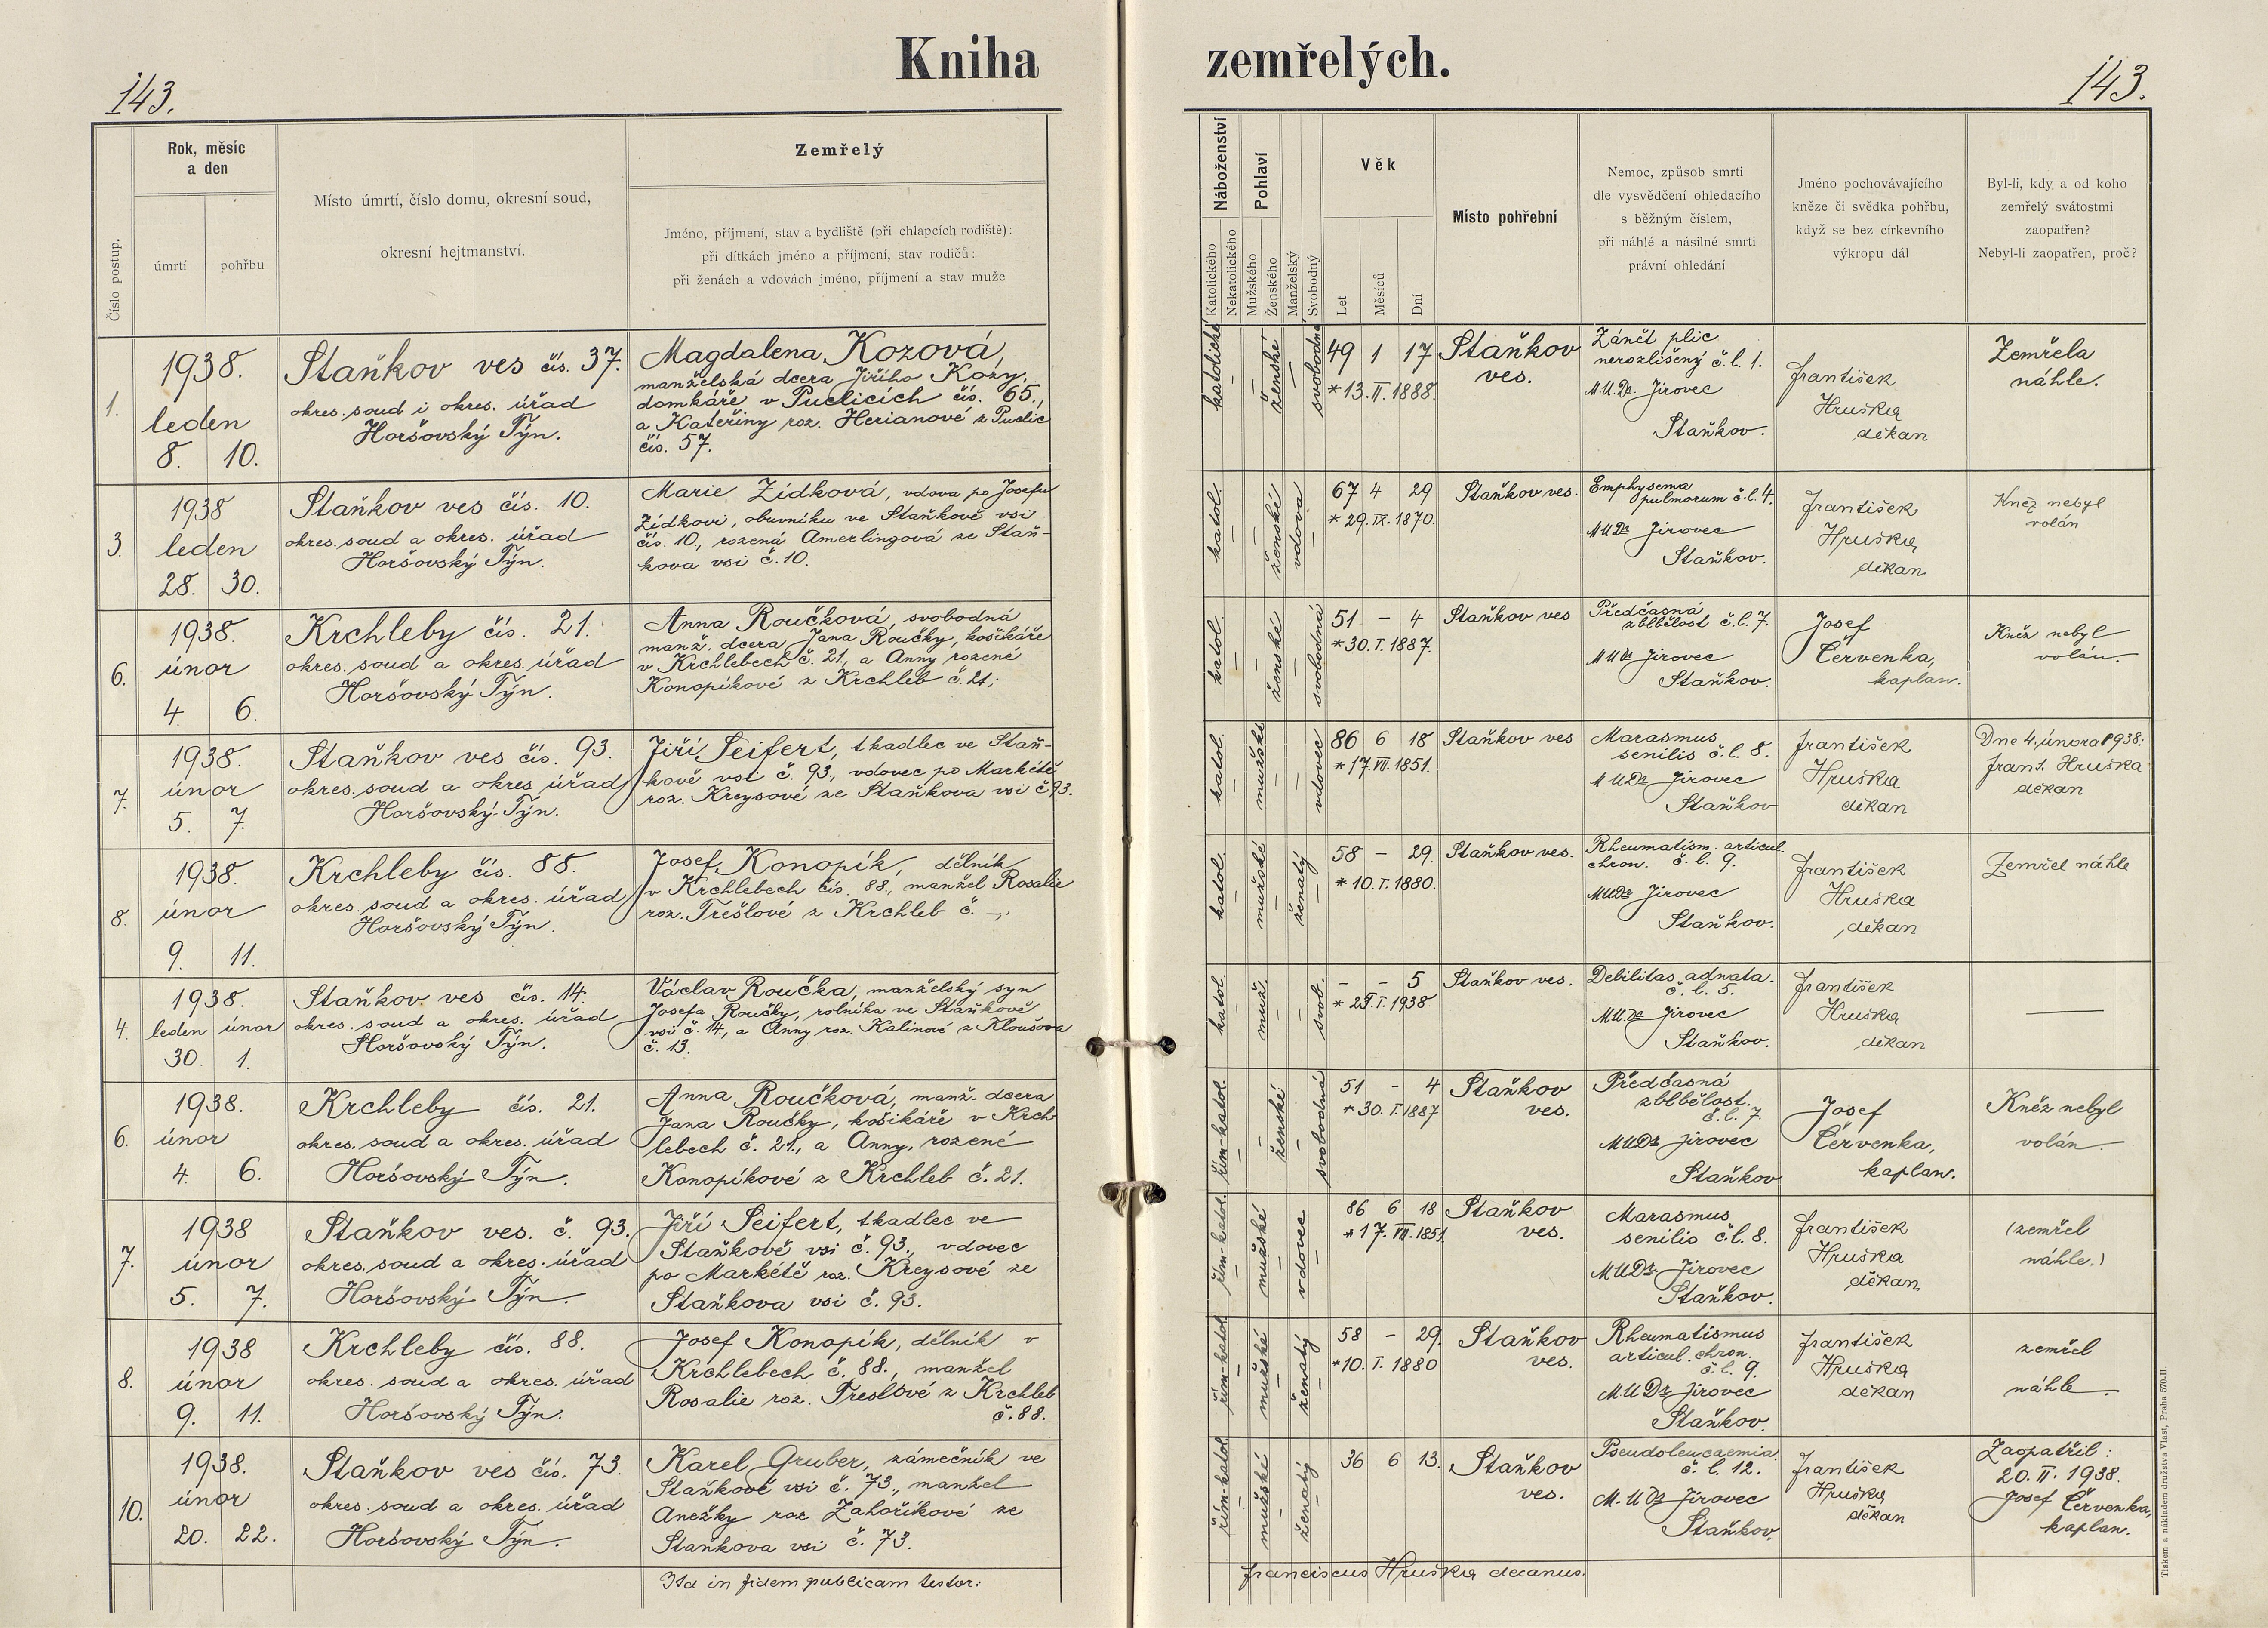 Kniha
zemřelých.
143.
143.
Číslo postup.
Rok, měsíc
a den
úmrtí
pohřbu
Místo úmrtí, číslo domu, okresní soud,
okresní hejtmanství.
Zemřelý
Jméno, příjmení, stav a bydliště (při chlapcích rodiště):
při dítkách jméno a příjmení, stav rodičů:
při ženách a vdovách jméno, příjmení a stav muže
Náboženství
Katolického
Nekatolického
Pohlaví
Mužského
Ženského
Manželský
Svobodný
Věk
Let
Měsíců
Dní
Místo pohřební
Nemoc, způsob smrti
dle vysvědčení ohledacího
s běžným číslem,
při náhlé a násilné smrti
právní ohledání
Jméno pochovávajícího
kněze či svědka pohřbu,
když se bez církevního
výkropu dál
Byl-li, kdy a od koho
zemřelý svátostmi
zaopatřen?
Nebyl-li zaopatřen, proč?
1.
1938.
leden
8. 10.
Staňkov ves čís. 37.
okres. soud i okres. úřad
Horšovský Týn.
Magdalena Kozová,
manželská dcera Jiřího Kozy,
domkáře v Puclicích čís. 65.,
a Kateřiny roz. Herianové z Puclic
čís. 57.
katolické
ženské
svobodná
49 1 17
*13. II. 1888.
Staňkov
ves.
Zánět plic
nerozlišený č.l. 1.
M.U.Dr. Jirovec
Staňkov.
František
Hruška
děkan
Zemřela
náhle.
3.
1938
leden
28. 30.
Staňkov ves čís. 10.
okres. soud a okres. úřad
Horšovský Týn.
Marie Zídková, vdova po Josefu
Zídkovi, obuvníku ve Staňkově vsi
čís. 10., rozená Amerlingová ze Staň-
kova vsi č. 10.
katol.
ženské
vdova
67 4 29
*29. IX. 1870.
Staňkov ves.
Emphysema
pulmorum č.l. 4.
MUDr Jirovec
Staňkov.
František
Hruška,
děkan
Kněz nebyl
volán
6.
1938.
únor
4 6.
Krchleby čís. 21.
okres. soud a okres. úřad
Horšovský Týn.
Anna Roučková, svobodná
manž. dcera Jana Roučky, košikáře
v Krchlebech č. 21., a Anny rozené
Konopíkové z Krchleb č. 21.;
katol.
ženské
svobodná
51 - 4
*30. I. 1887.
Staňkov ves
Předčasná
zblbělost č.l. 7.
MUDr Jirovec
Staňkov.
Josef
Červenka,
kaplan.
Kněz nebyl
volán.
7.
1938.
únor
5. 7.
Staňkov ves čís. 93.
okres. soud a okres úřad
Horšovský Týn.
Jiří Seifert, tkadlec ve Staň-
kově vsi č. 93., vdovec po Markétě
roz. Kreysové ze Staňkova vsi č 93.
katol.
mužské
vdovec
86 6 18
*17. VII. 1851.
Staňkov ves
Marasmus
senilis č.l. 8.
MUDr Jirovec
Staňkov
František
Hruška
děkan
Dne 4. února 1938:
Frant. Hruška
děkan
8.
1938.
únor
9. 11.
Krchleby čís. 88.
okres. soud a okres. úřad
Horšovský Týn.
Josef Konopík, dělník
v Krchlebech čís. 88., manžel Rosalie
roz. Trešlové z Krchleb č. —.
katol.
mužské
ženatý
58 - 29.
*10. I. 1880.
Staňkov ves.
Rheumatism. articul.
chron. č.l. 9.
MUDr Jirovec
Staňkov.
František
Hruška
děkan
Zemřel náhle
4.
1938.
leden únor
30. 1.
Staňkov ves čís. 14.
okres. soud a okres. úřad
Horšovský Týn.
Václav Roučka, manželský syn
Josefa Roučky, rolníka ve Staňkově
vsi č. 14., a Anny roz. Kalinové z Kloušova
č. 13.
katol.
muž.
svob.
- - 5
*25. I. 1938.
Staňkov ves.
Debilitas adnata.
č.l. 5.
MUDr Jirovec
Staňkov.
František
Hruška
děkan
—
6.
1938.
únor
4 6.
Krchleby čís. 21.
okres. soud a okres. úřad
Horšovský Týn.
Anna Roučková, manž. dcera
Jana Roučky, košikáře v Krch
lebech č. 21., a Anny, rozené
Konopíkové z Krchleb č. 21.
řím-katol.
ženské
svobodná
51 - 4
*30. I. 1887
Staňkov
ves.
Předčasná
zblbělost.
č.l. 7.
MUDr Jirovec
Staňkov
Josef
Červenka,
kaplan.
Kněz nebyl
volán.
7.
1938
únor
5. 7.
Staňkov ves. č. 93.
okres. soud a okres. úřad
Horšovský Týn.
Jiří Seifert, tkadlec ve
Staňkově vsi č. 93., vdovec
po Markétě roz. Kreysové ze
Staňkova vsi č. 93.
řím-katol.
mužské
vdovec
86 6 18
*17. VII. 1851.
Staňkov
ves.
Marasmus
senilis č.l. 8.
MUDr Jirovec
Staňkov.
František
Hruška
děkan
(zemřel
náhle.)
8.
1938
únor
9. 11.
Krchleby čís. 88.
okres. soud a okres. úřad
Horšovský Týn.
Josef Konopík, dělník v
Krchlebech č. 88., manžel
Rosalie roz. Treslové z Krchleb
č. 88.
řím-katol
mužské
ženatý
58 - 29.
*10. I. 1880
Staňkov
ves.
Rheumatismus
articul. chron.
č.l. 9.
MUDr Jirovec
Staňkov.
František
Hruška
děkan
zemřel
náhle.
10.
1938.
únor
20. 22.
Staňkov ves čís. 73.
okres. soud a okres. úřad
Horšovský Týn.
Karel Gruber, zámečník ve
Staňkově vsi č. 73., manžel
Anežky roz Zahoříkové ze
Staňkova vsi č. 73.
řím-katol.
mužské
ženatý
36 6 13.
Staňkov
ves.
Pseudoleucaemia
č.l. 12.
M.UDr Jirovec
Staňkov.
František
Hruška
děkan
Zaopatřil:
20. II. 1938.
Josef Červenka,
kaplan.
Ita in fidem publicam testor:
Franciscus Hruška decanus.
Tiskem a nákladem družstva Vlast, Praha 570-II.